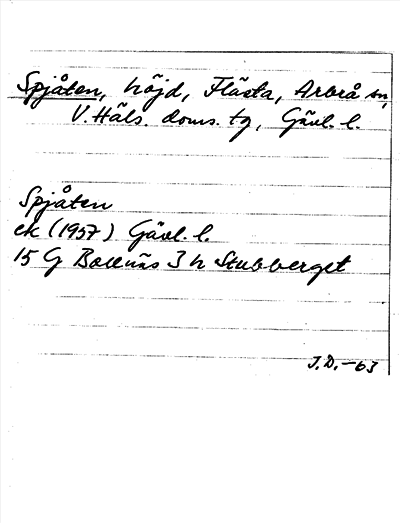 Spjåten, höjd, Flästa, Arbrå sn,
V. Häls. doms. tg, Gävl. l.
Spjåten
ek (1957) Gävl. l.
15 G Bollnäs 3 h Stubberget
J.D.-63